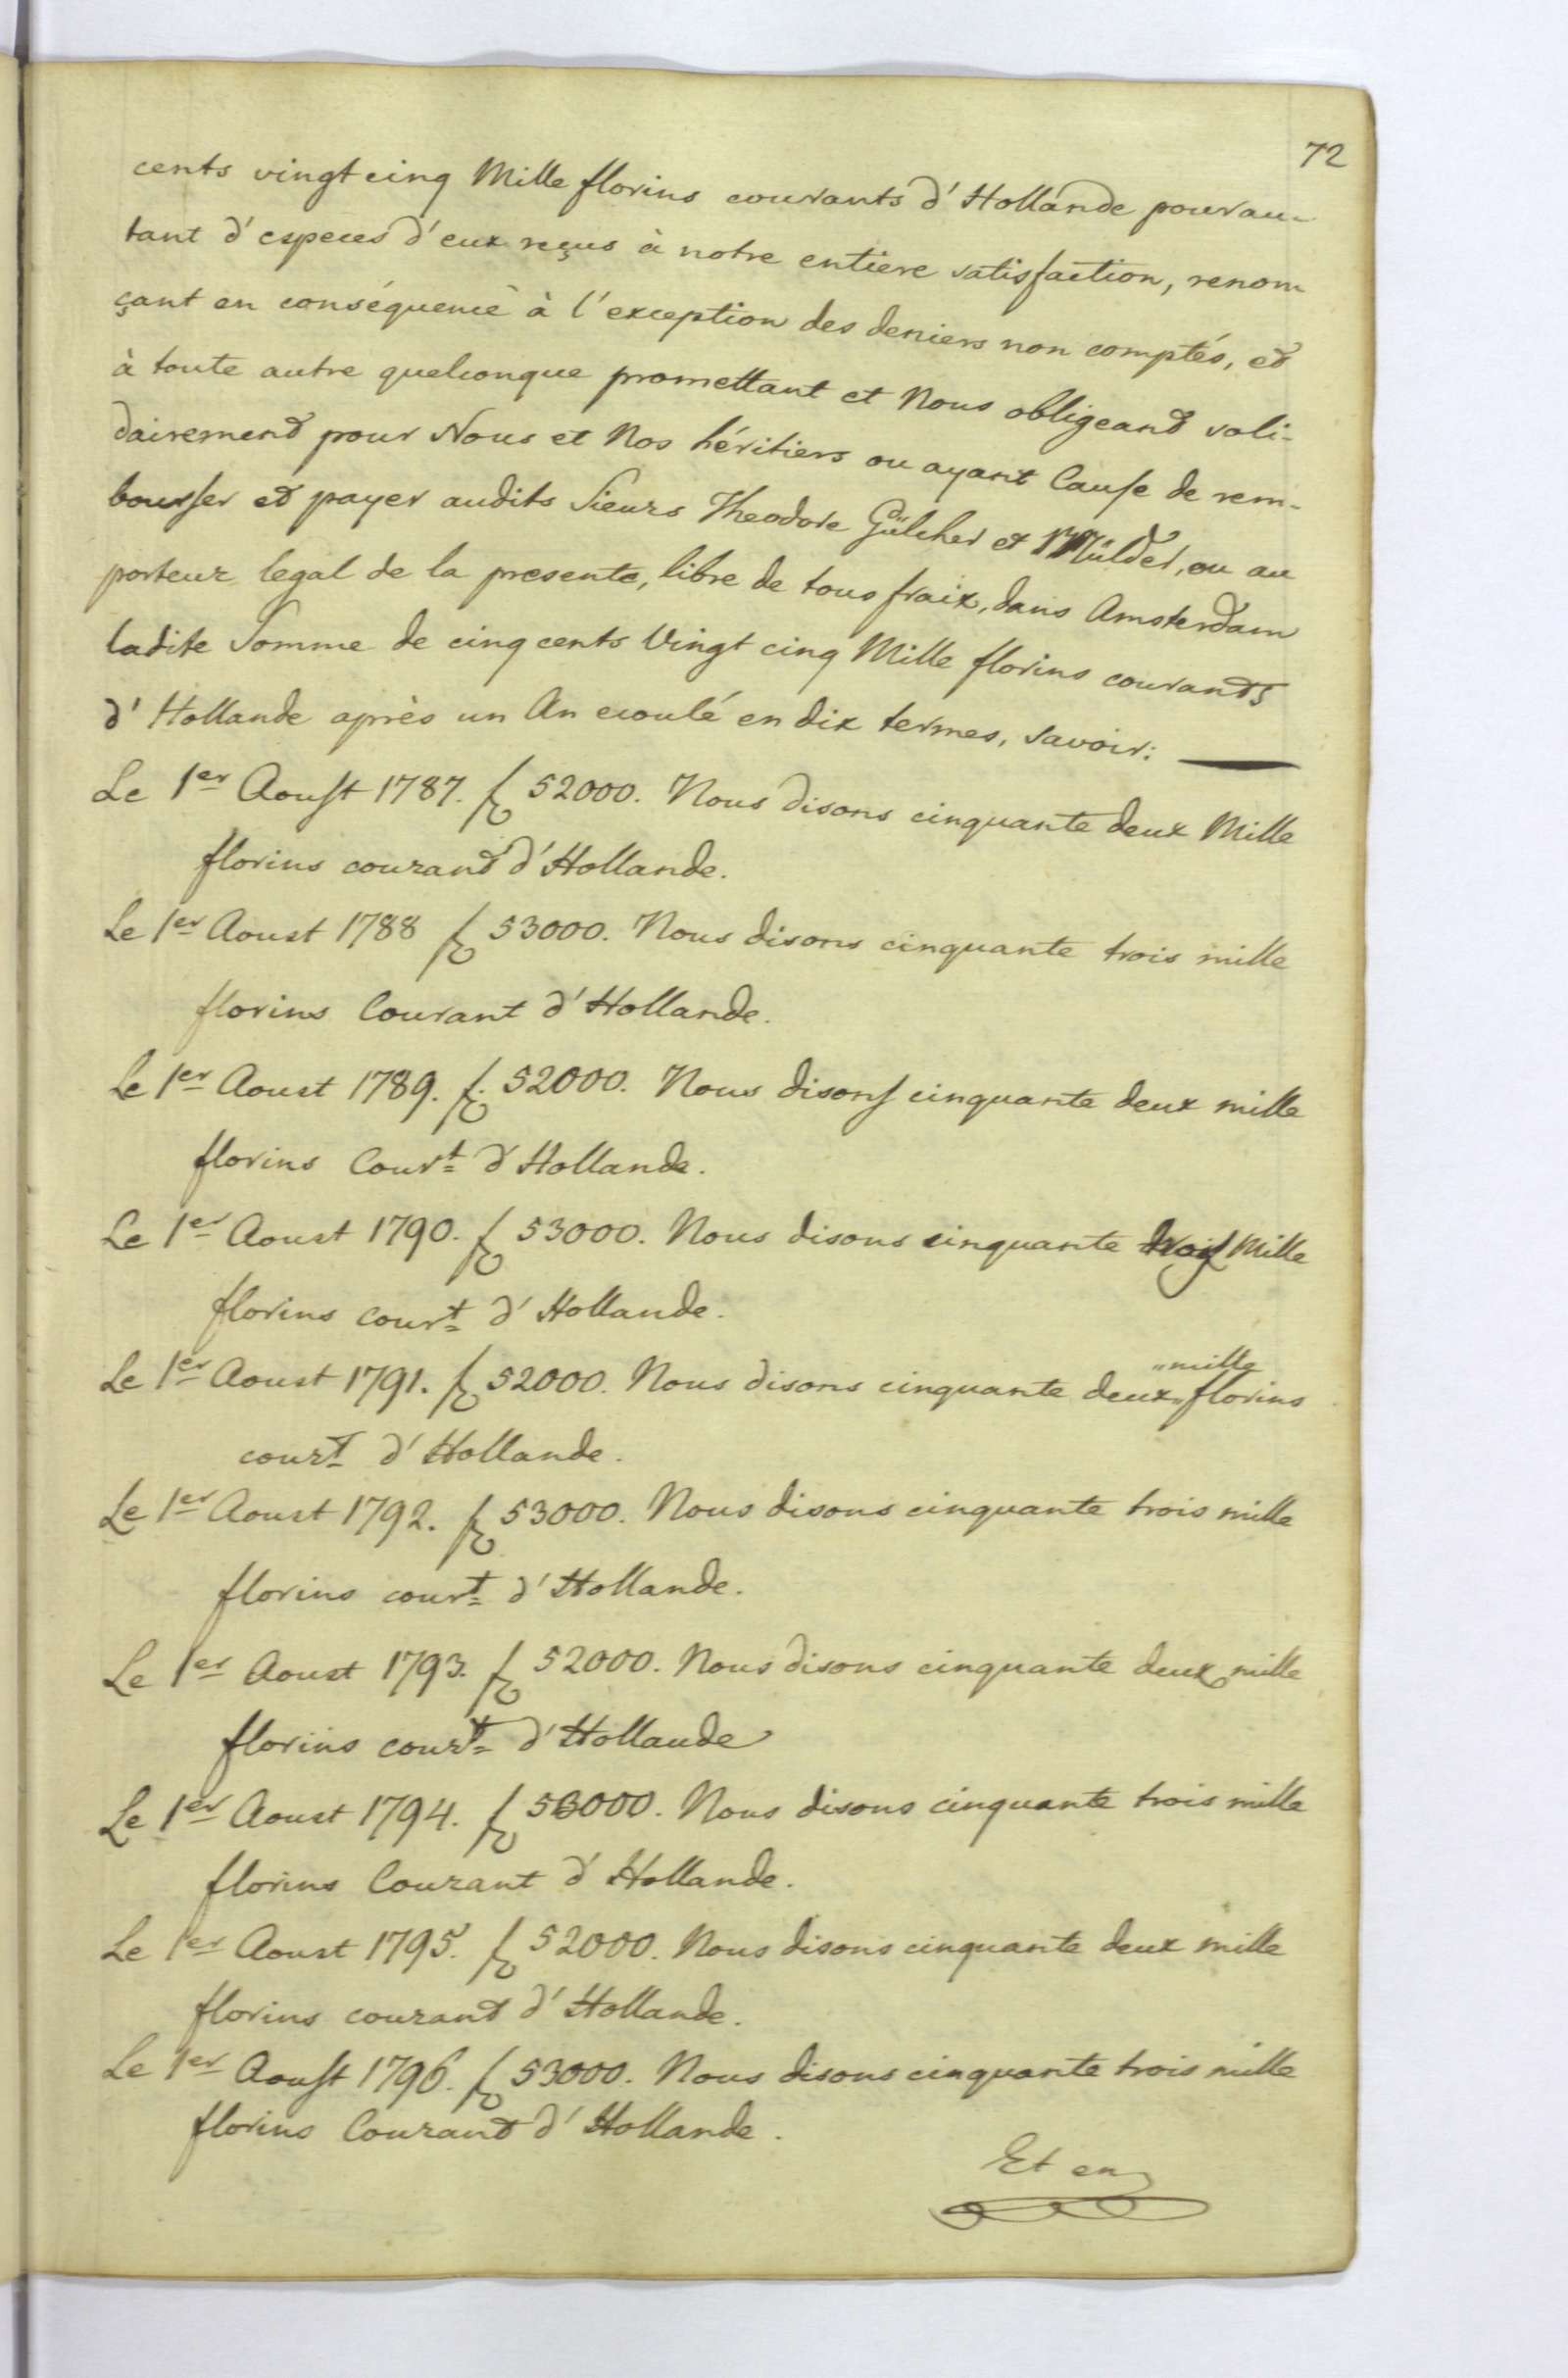 72
cents vingt cinq Mille florins courants d'Hollande pour au-
tant d'especes d'eux reçus à notre entiere satisfaction, renon-
çant en conséquence à l'exception des deniers non comptés, et
à toute autre quelconque promettant et Nous obligeant soli-
dairement pour Nous et Nos héritiers ou ayant Cause de rem-
bourser et payer audits Sieurs Theodore Gülcher et Mülder, ou au
porteur legal de la presente, libre de tous fraix, dans Amsterdam
ladite Somme de cinq cents Vingt cinq Mille florins courants
d'Hollande après un An ecoulé en dix termes, savoir:
Le 1er Aoust 1787. f 52000. Nous disons cinquante deux Mille
florins courant d'Hollande.
Le 1er Aoust 1788 f 53000. Nous disons cinquante trois mille
florins Courant d'Hollande.
Le 1er Aoust 1789. f 52000. Nous disons cinquante deux mille
florins Court d'Hollande.
Le 1er Aoust 1790. f 53000. Nous disons cinquante trois Mille
florins court d'Hollande.
Le 1er Aoust 1791. f 52000. Nous disons cinquante deux mille florins
court d'Hollande.
Le 1er Aoust 1792. f 53000. Nous disons cinquante trois mille
florins court d'Hollande.
Le 1er Aoust 1793. f 52000. Nous disons cinquante deux mille
florins court d'Hollande
Le 1er Aoust 1794. f 53000. Nous disons cinquante trois mille
florins Courant d'Hollande.
Le 1er Aoust 1795. f 52000. Nous disons cinquante deux mille
florins courant d'Hollande.
Le 1er Aoust 1796. f 53000. Nous disons cinquante trois mille
florins Courant d'Hollande.
Et en